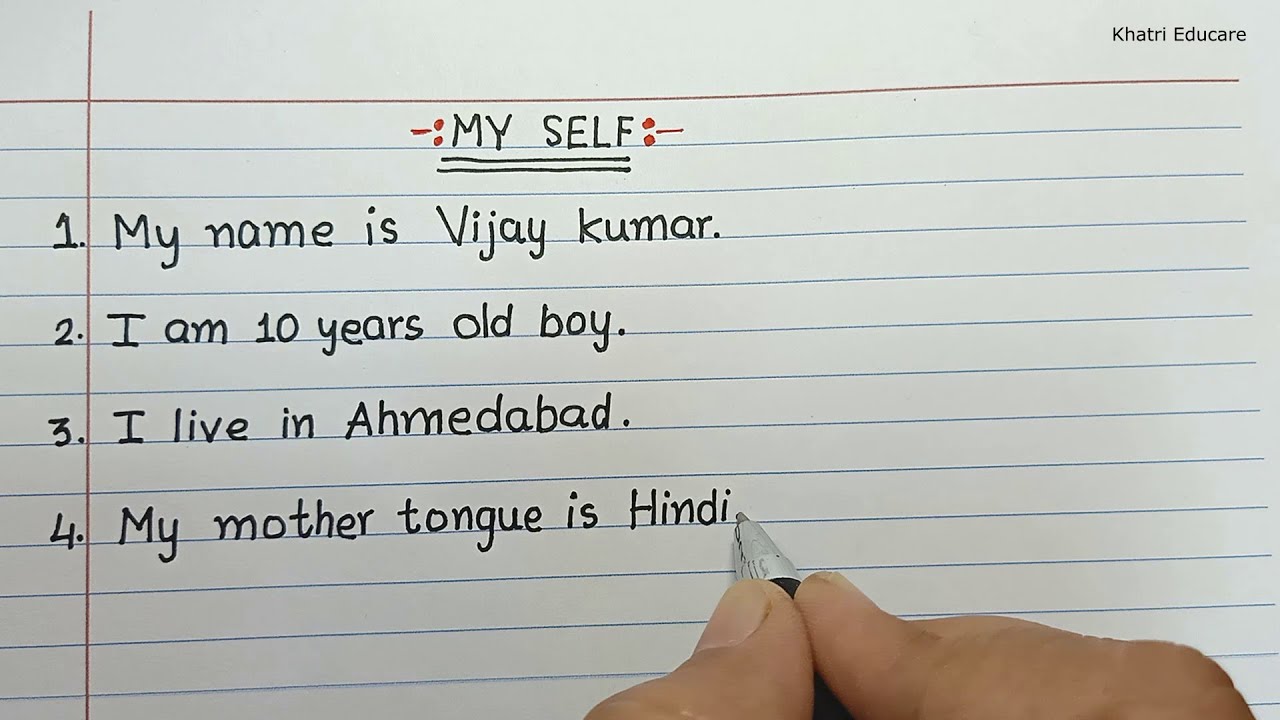 Khatri Educare
-:MY SELF:-
1. My name is Vijay kumar.
2. I am 10 years old boy.
3. I live in Ahmedabad.
4. My mother tongue is Hindi.